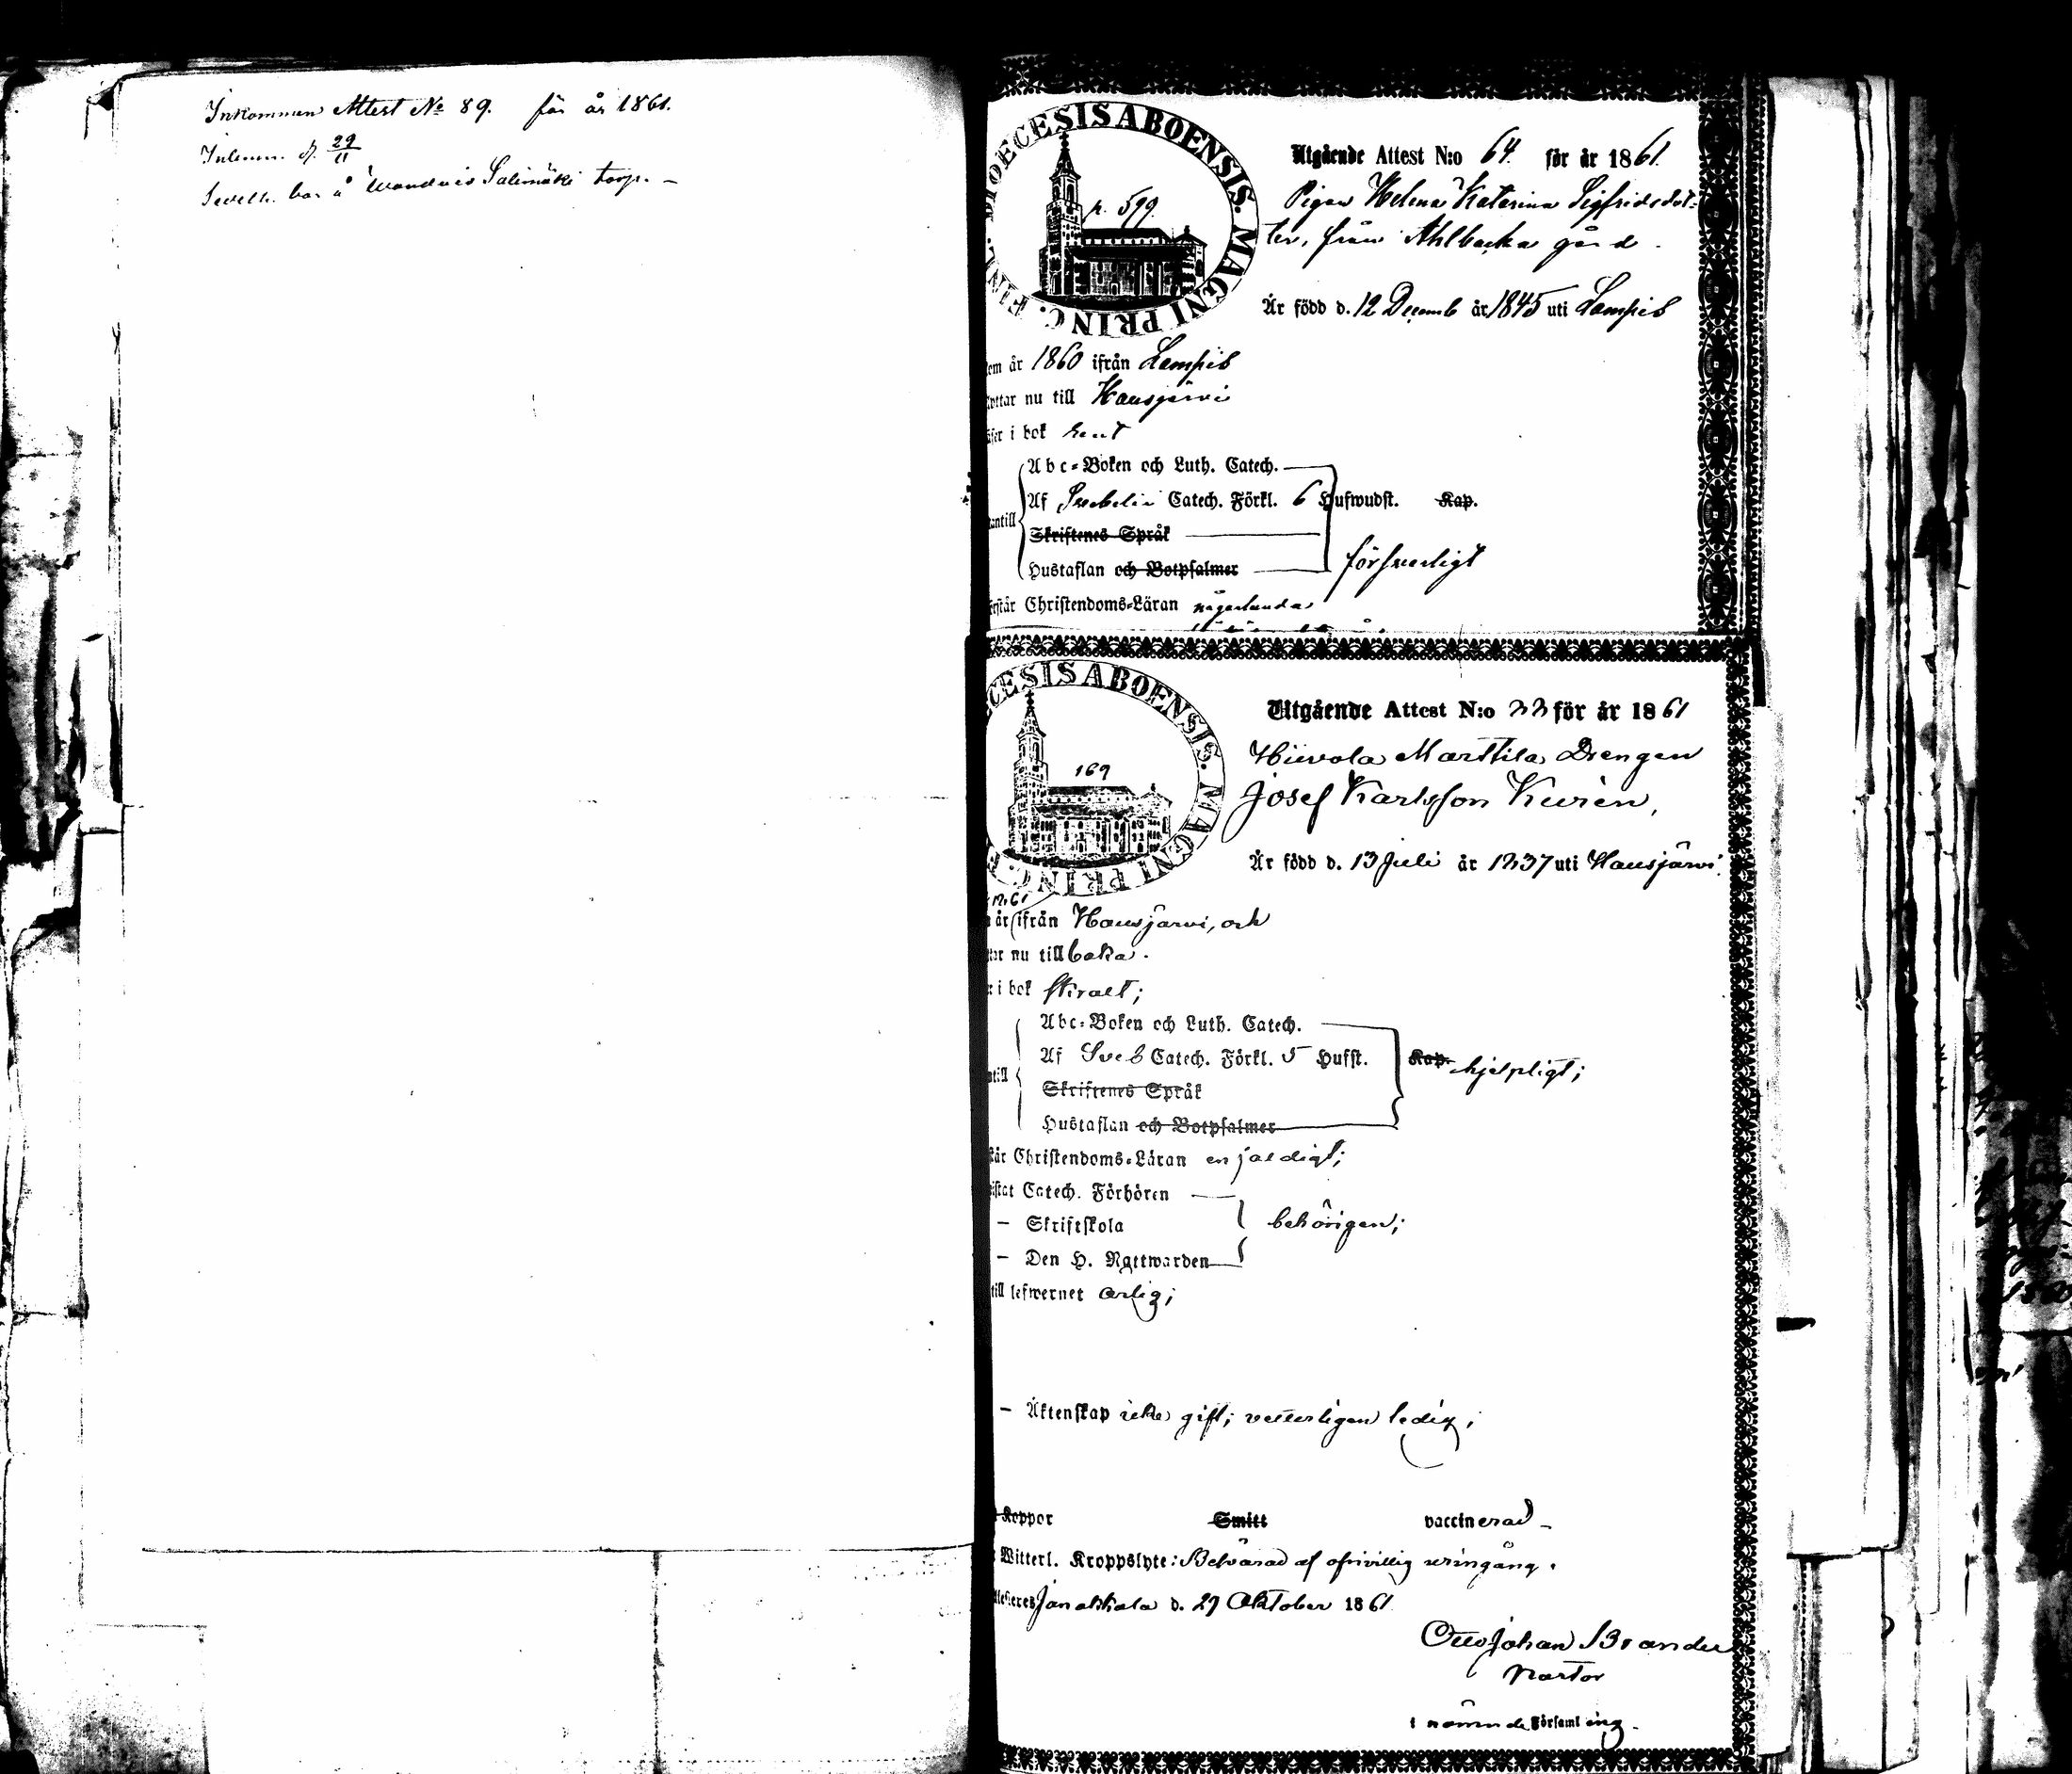 Inkommen Attest No 89. för år 1861.
Inlemn. d. 29/11
bor å Salimäki torp. –
DIOECESIS ABOENSIS. MAGNI PRINC. FINL.
p. 599.
Utgående Attest N:o 64. för år 1861.
Pigan Helena Katarina Sigfridsdot-
ter, från Ahlbacka gård.
Är född d. 12 Decemb år 1845 uti Lampis
om år 1860 ifrån Lampis
yttar nu till Hausjärvi
äser i bok rent
Abc-Boken och Luth. Catech.
Af Svebelii Catech. Förkl. 6 Hufwudst. Kap.
antill
Skriftenes Språk
Hustaflan och Botpsalmer försvarligt
erstår Christendoms-Läran någorlunda
DIOECESIS ABOENSIS. MAGNI PRINC. F
169
Utgående Attest N:o 22 för år 1861
Hiivola Marttila Drengen
Josef Karlsson Kurén,
Är född d. 13 Juli år 1837 uti Hausjärvi.
1861
år ifrån Hausjärvi, och
ttar nu tillbaka.
r i bok skralt;
Abc-Boken och Luth. Catech.
Af Sveb Catech. Förkl. 5 Hufst. Kap. hjelpligt;
ntill
Skriftenes Språk
Hustaflan och Botpsalmer
tår Christendoms-Läran enfaldigt;
istat Catech. Förhören
– Skriftskola behörigen;
– Den H. Nattwarden
till lefwernet ärlig;
– Äktenskap icke gift; vetterligen ledig;
Koppor Smitt vaccinerad –
Witterl. Kroppslyte: Besvärad af ofrivillig uringång.
tteseres Janakkala d. 29 Oktober 1861
Otto Johan Brander
Pastor
i nämnde Församling.